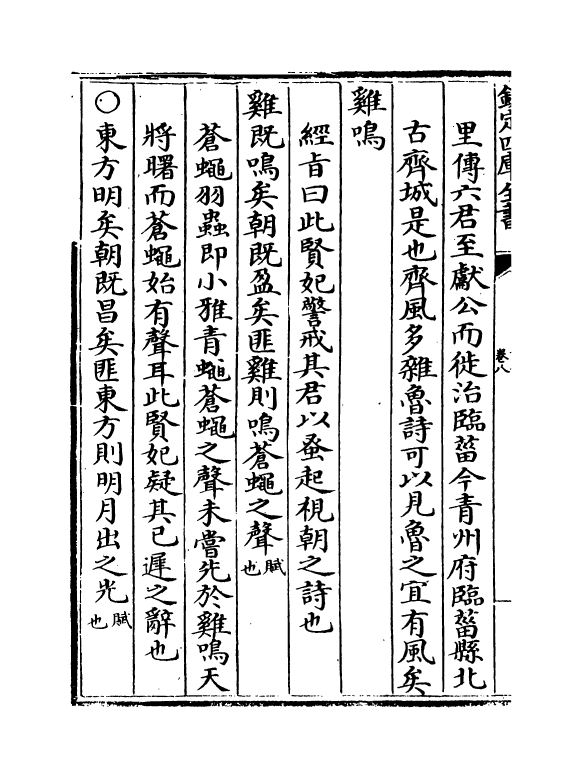 欽定四庫全書
卷八
里傳六君至獻公而徙治臨菑今青州府臨菑縣北
古齊城是也齊風多雜魯詩可以見魯之宜有風矣
雞鳴
經旨曰此賢妃警戒其君以蚤起視朝之詩也
雞既鳴矣朝既盈矣匪雞則鳴蒼蠅之聲賦也
蒼蠅羽蟲即小雅青蠅蒼蠅之聲未嘗先於雞鳴天
將曙而蒼蠅始有聲耳此賢妃疑其已遲之辭也
〇東方明矣朝既昌矣匪東方則明月出之光賦也